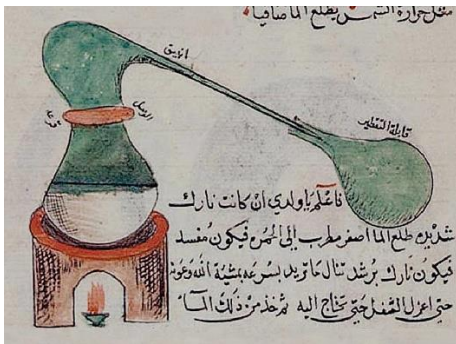 مثل حرارة الشمس يطلع الما صافيا
الانبيق
الوصل
قرعه
قابلة التقطير
فاعلم يا ولدي ان كانت نارك
شديده طلع الما اصفر مطرب الى الحمره فيكون مفسد
فيكون نارك برشد تنال ما تريد بسرعه بمشية الله وعونه
حتى اعزل الثفل حتى تحتاج اليه ثم خذ من ذلك المآ